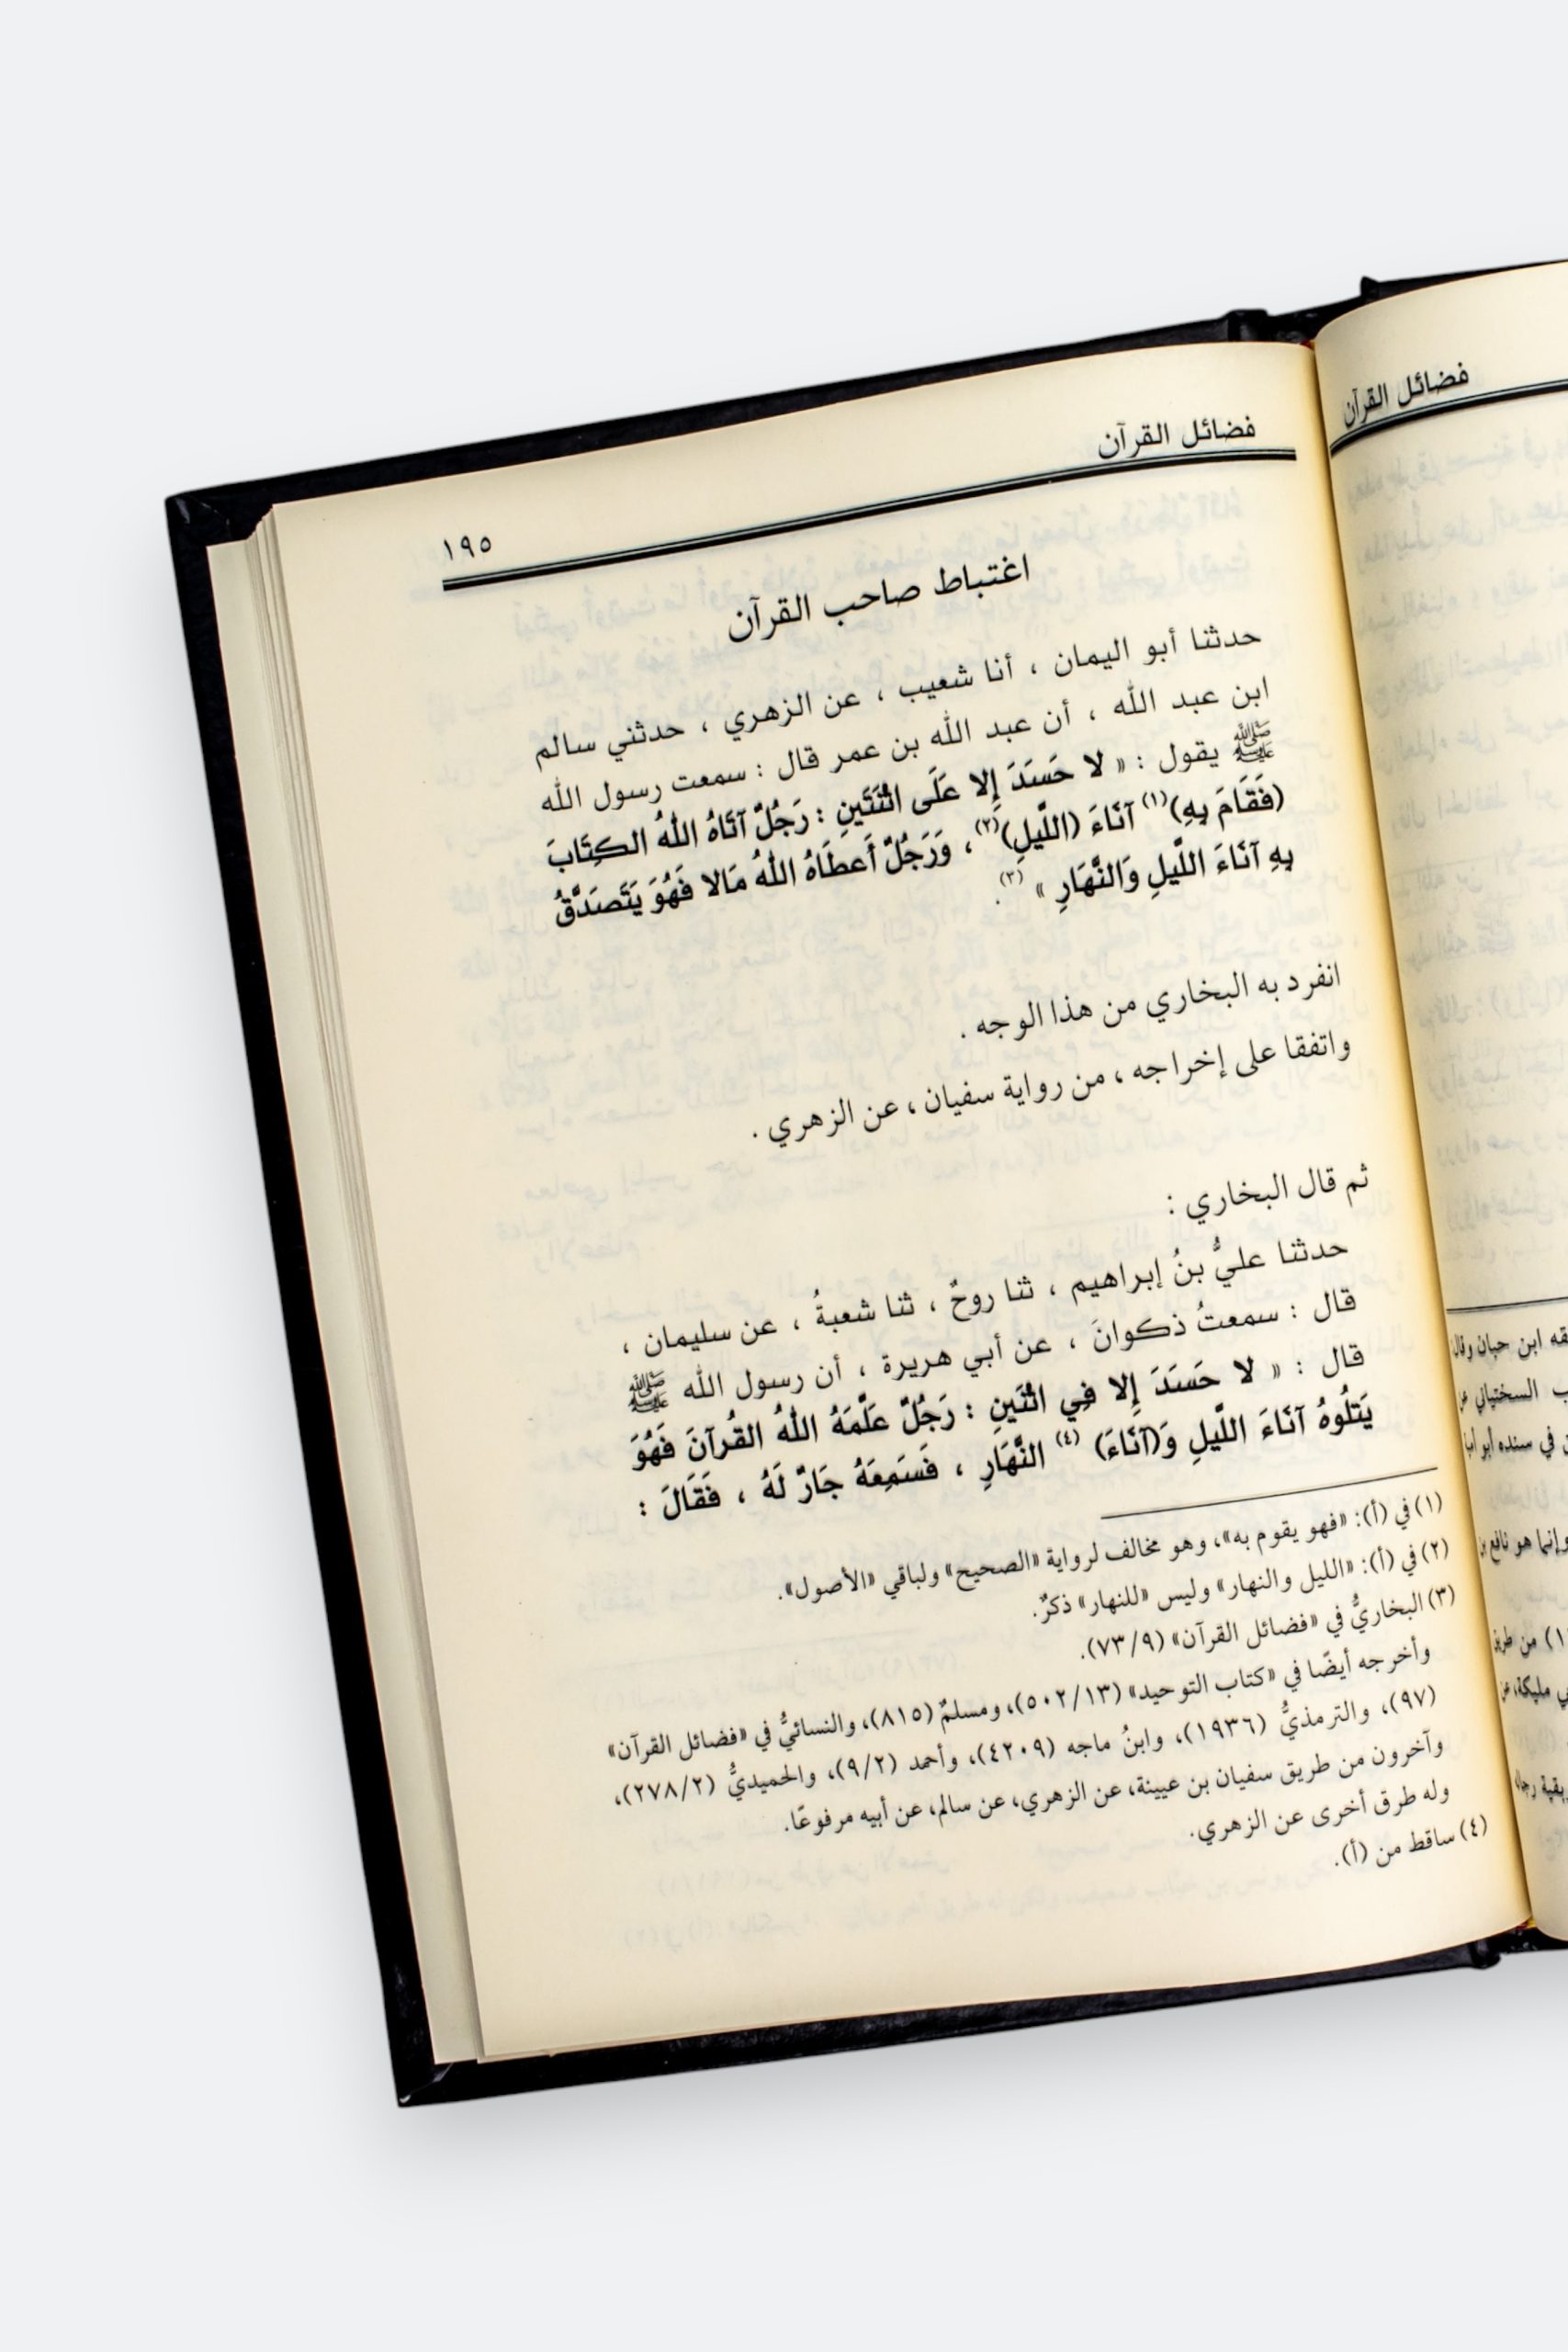 فضائل القرآن
١٩٥
اغتباط صاحب القرآن
حدثنا أبو اليمان ، أنا شعيب ، عن الزهري ، حدثني سالم
ابن عبد الله ، أن عبد الله بن عمر قال : سمعت رسول الله
ﷺ يقول : « لا حَسَدَ إِلا عَلَى اثْنَتَينِ : رَجُلٌ آتَاهُ اللهُ الكِتَابَ
(فَقَامَ بِهِ)(١) آنَاءَ (اللَّيلِ)(٢)، وَرَجُلٌ أَعطَاهُ اللهُ مَالا فَهُوَ يَتَصَدَّقُ
بِهِ آنَاءَ اللَّيلِ وَالنَّهَارِ » (٣).
انفرد به البخاري من هذا الوجه .
واتفقا على إخراجه ، من رواية سفيان ، عن الزهري .
ثم قال البخاري :
حدثنا عليُّ بنُ إبراهيم ، ثنا روحٌ ، ثنا شعبةُ ، عن سليمان ،
قال : سمعتُ ذكوانَ ، عن أبي هريرة ، أن رسول الله ﷺ
قال : « لا حَسَدَ إِلا فِي اثْنَينِ : رَجُلٌ عَلَّمَهُ اللهُ القُرآنَ فَهُوَ
يَتلُوهُ آنَاءَ اللَّيلِ وَ(آنَاءَ) (٤) النَّهَارِ ، فَسَمِعَهُ جَارٌ لَهُ ، فَقَالَ :
(١) في (أ): «فهو يقوم به»، وهو مخالف لرواية «الصحيح» ولباقي «الأصول».
(٢) في (أ): «الليل والنهار» وليس «للنهار» ذكرٌ.
(٣) البخاريُّ في «فضائل القرآن» (٧٣/٩).
وأخرجه أيضًا في «كتاب التوحيد» (٥٠٢/١٣)، ومسلمٌ (٨١٥)، والنسائيُّ في «فضائل القرآن»
(٩٧)، والترمذيُّ (١٩٣٦)، وابنُ ماجه (٤٢٠٩)، وأحمد (٩/٢)، والحميديُّ (٢٧٨/٢)،
وآخرون من طريق سفيان بن عيينة، عن الزهري، عن سالم، عن أبيه مرفوعًا.
وله طرق أخرى عن الزهري.
(٤) ساقط من (أ).
فضائل القرآن
ابن حبان وقال
السختياني عن
في سنده أبو
وإنما هو نافع بن
من طريق
مليكة، عن